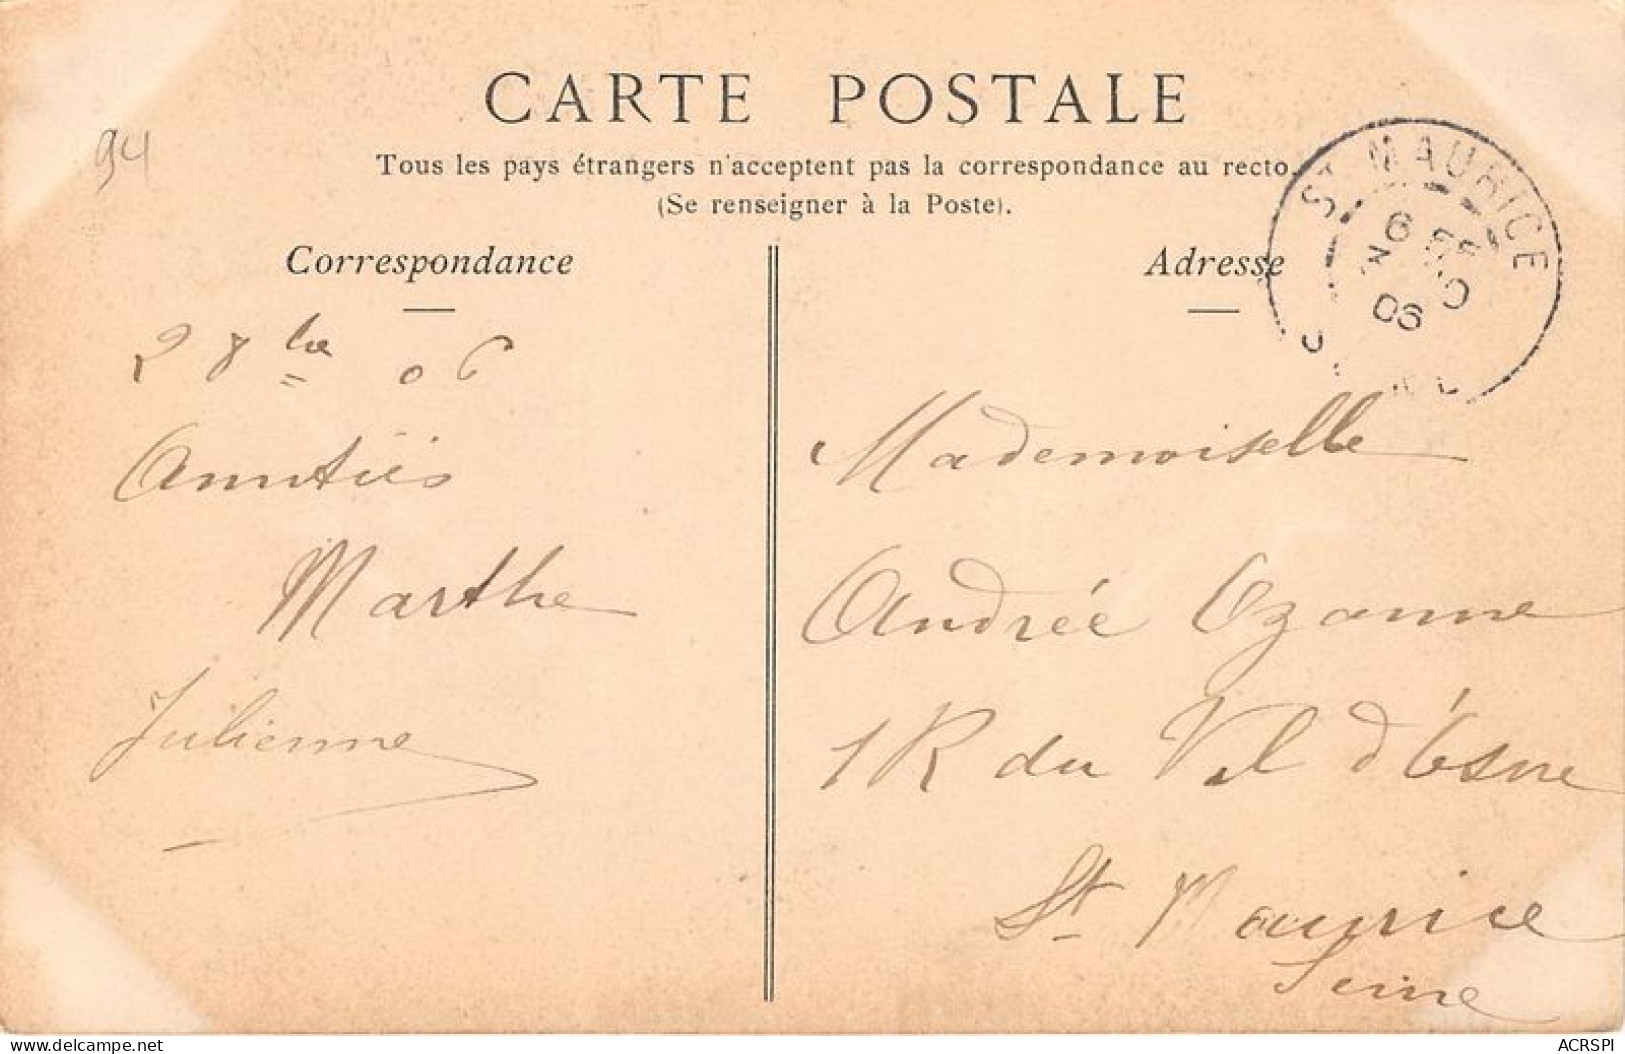 CARTE POSTALE
Tous les pays étrangers n'acceptent pas la correspondance au recto.
(Se renseigner à la Poste).
94
ST MAURICE
6
06
Correspondance
2 8bre 06
Amitiés
Marthe
Julienne
Adresse
Mademoiselle
Andrée Ozanne
1 R du Val d'Osne
St Maurice
Seine
ACRSPI